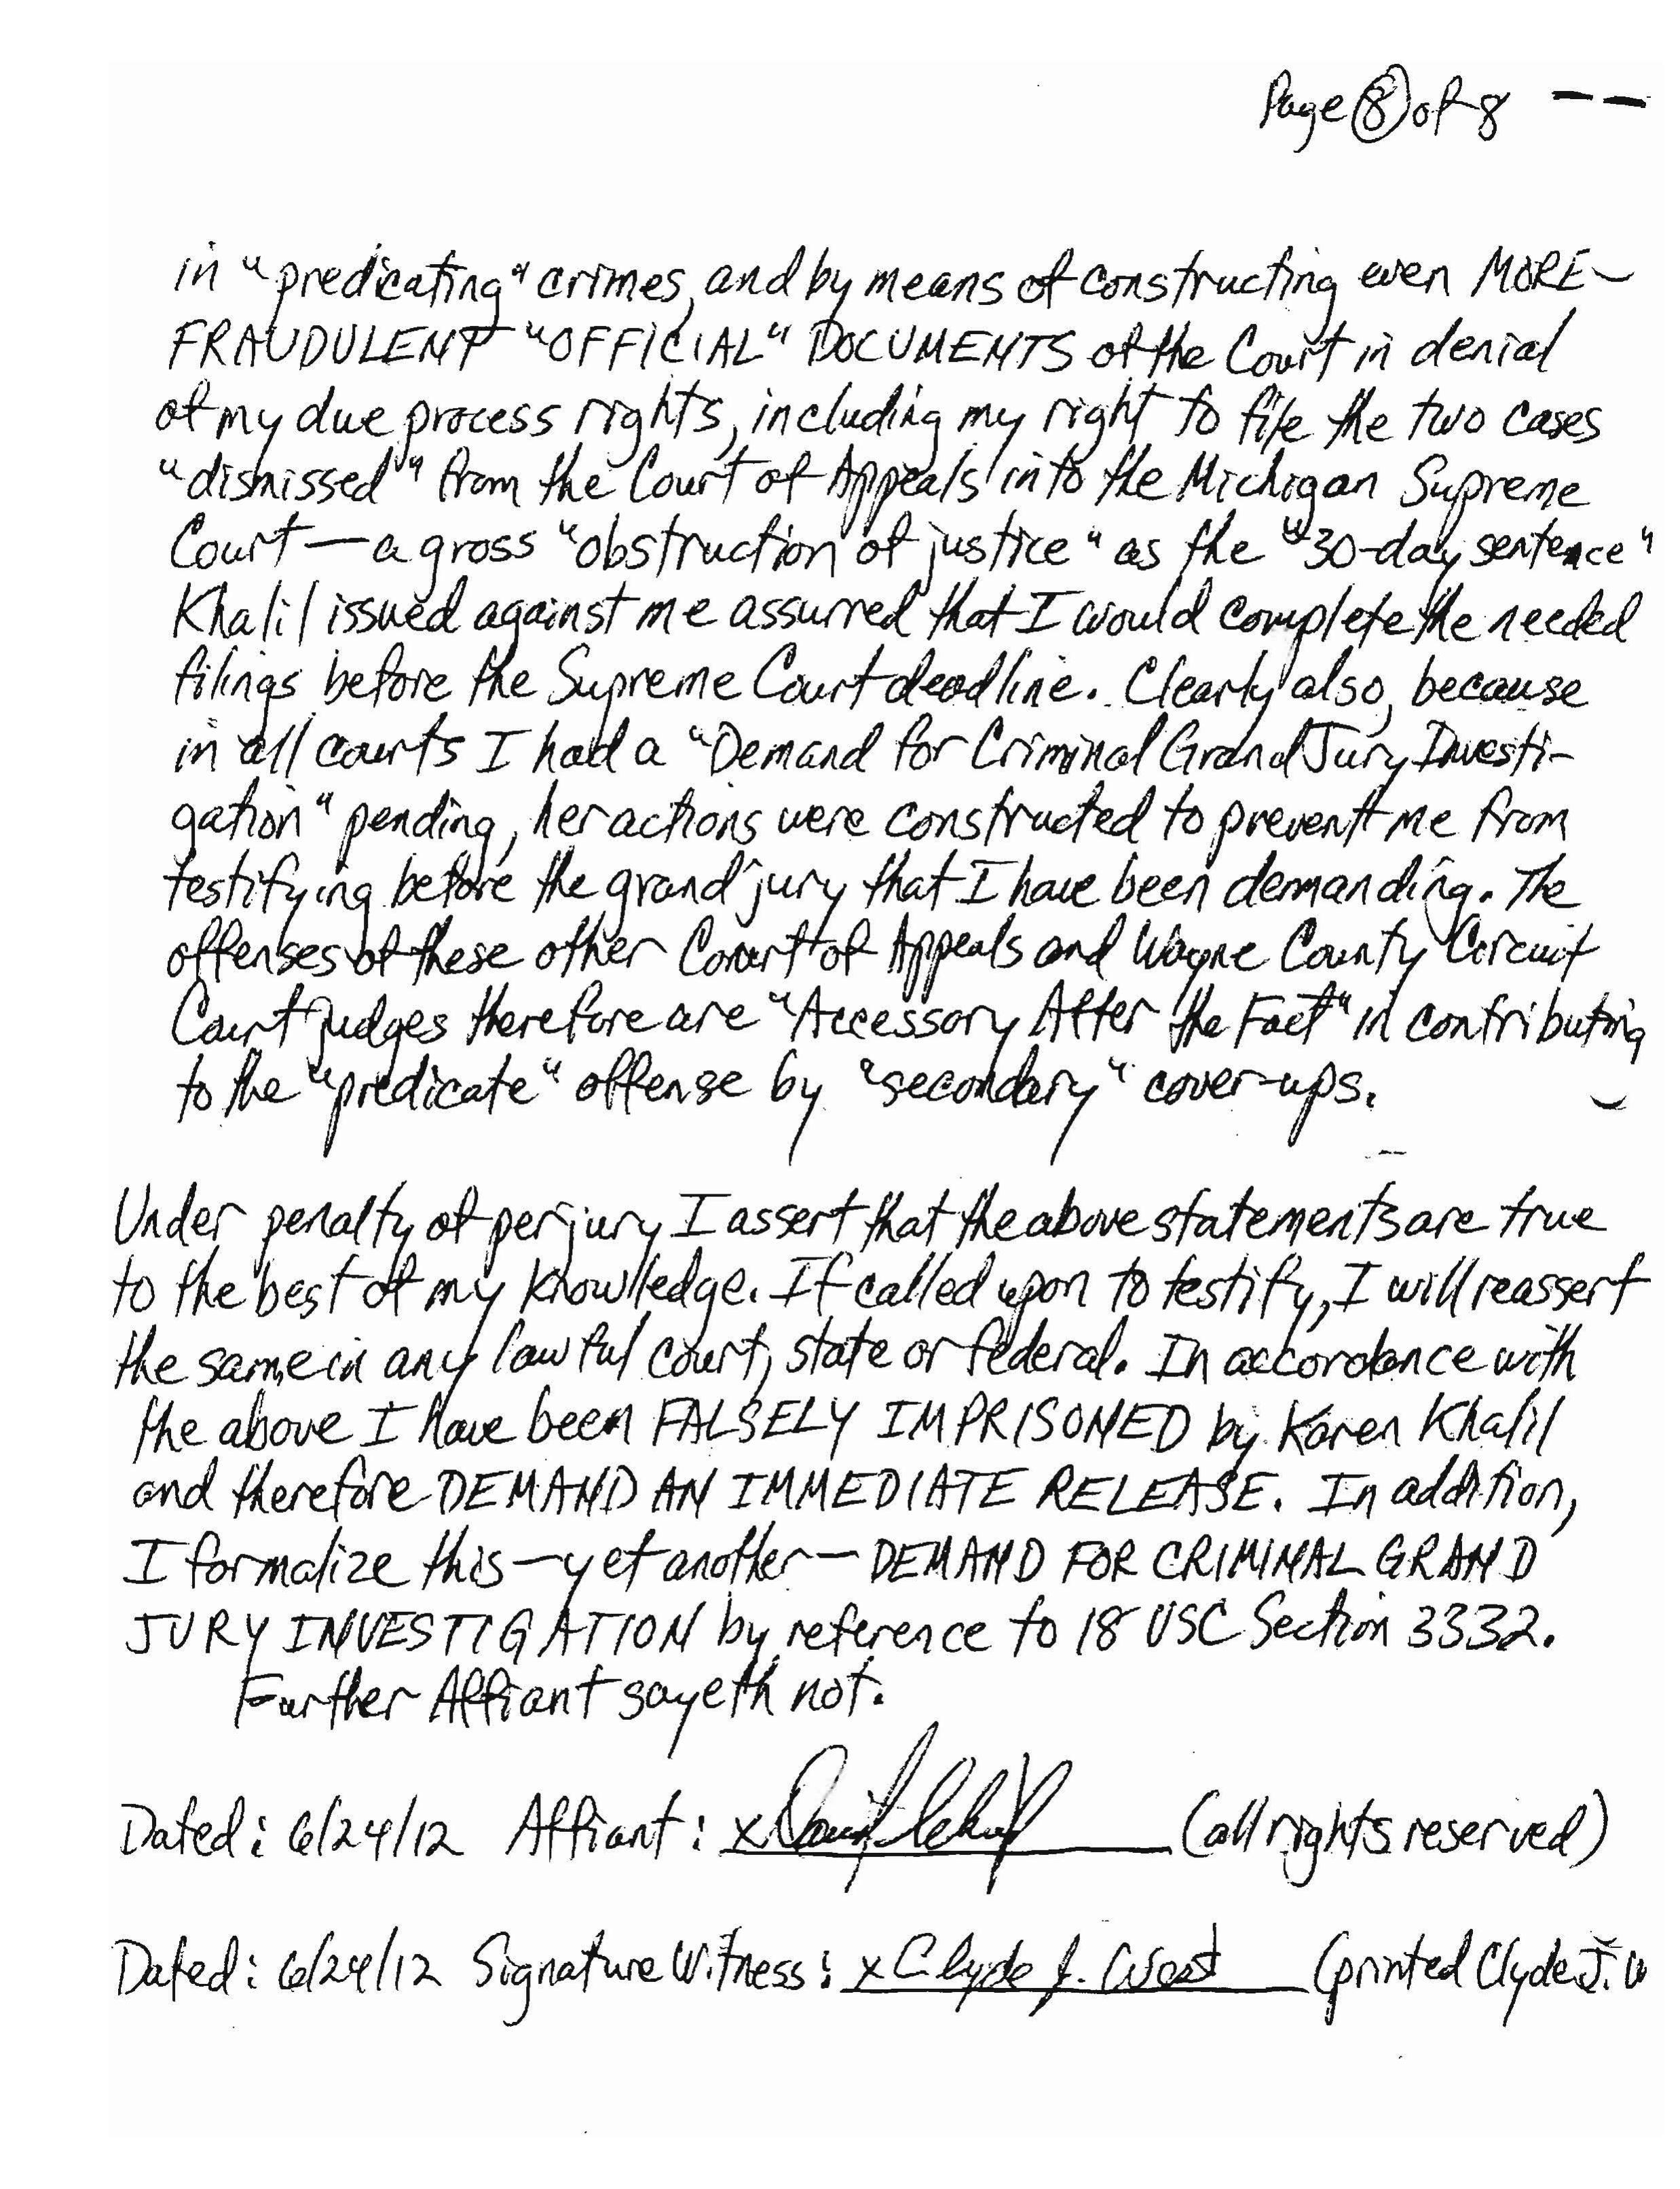 Page 8 of 8 --
in "predicating" crimes, and by means of constructing even MORE-
FRAUDULENT "OFFICIAL" DOCUMENTS of the Court in denial
of my due process rights, including my right to file the two cases
"dismissed" from the Court of Appeals into the Michigan Supreme
Court — a gross "obstruction of justice" as the "30-day sentence"
Khalil issued against me assurred that I would complete the needed
filings before the Supreme Court deadline. Clearly also, because
in all courts I had a "Demand for Criminal Grand Jury Investi-
gation" pending, her actions were constructed to prevent me from
testifying before the grand jury that I have been demanding. The
offenses of these other Court of Appeals and Wayne County Circuit
Court judges therefore are "Accessory After the Fact" in contributing
to the "predicate" offense by "secondary" cover-ups.
Under penalty of perjury I assert that the above statements are true
to the best of my knowledge. If called upon to testify, I will reassert
the same in any lawful court, state or federal. In accordance with
the above I have been FALSELY IMPRISONED by Karen Khalil
and therefore DEMAND AN IMMEDIATE RELEASE. In addition,
I formalize this — yet another — DEMAND FOR CRIMINAL GRAND
JURY INVESTIGATION by reference to 18 USC Section 3332.
Further Affiant sayeth not.
Dated: 6/24/12 Affiant: x (all rights reserved)
Dated: 6/24/12 Signature Witness: x Clyde J. West (printed Clyde J. W